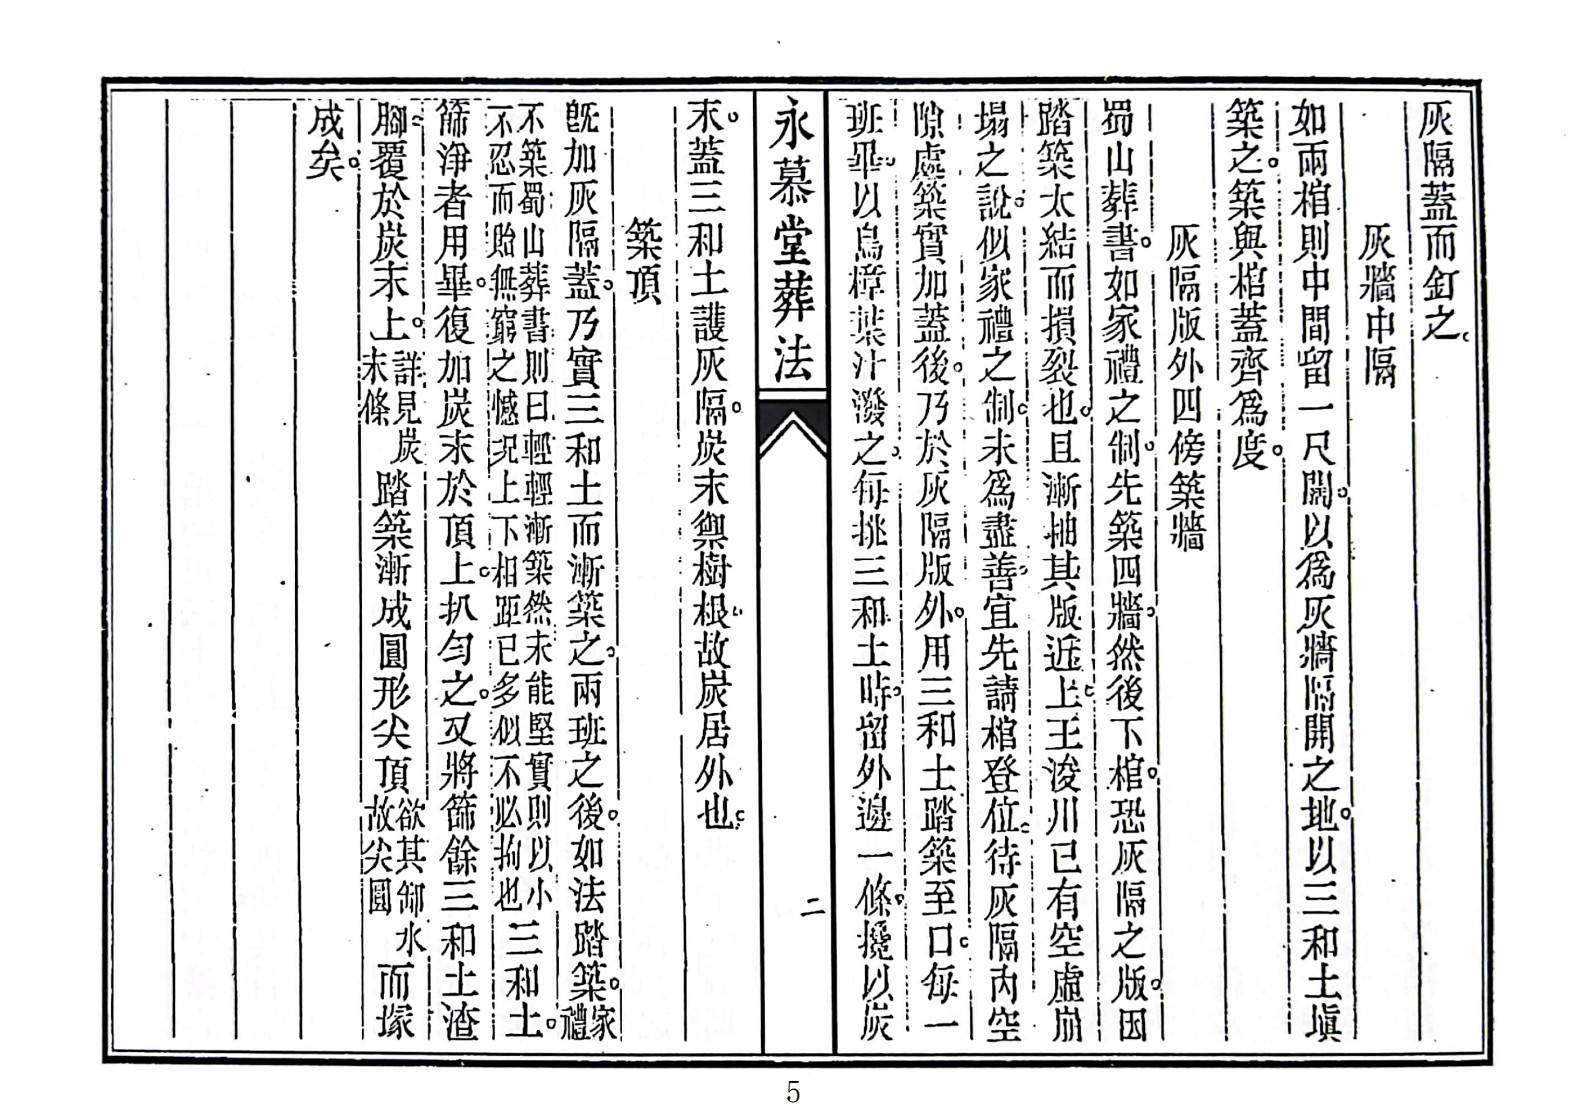 灰隔蓋而釘之。
灰牆中隔
如兩棺則中間留一尺闊。以爲灰牆隔開之地。以三和土塡
築之。築與棺蓋齊爲度。
灰隔版外四傍築牆
蜀山葬書。如家禮之制。先築四牆。然後下棺。恐灰隔之版。因
踏築太結而損裂也。且漸抽其版近上。王浚川已有空虛崩
塌之說。似家禮之制。未爲盡善。宜先請棺登位。待灰隔內空
隙處築實加蓋後。乃於灰隔版外。用三和土踏築至口。每一
班畢。以烏樟葉汁潑之。每挑三和土時。留外邊一條。攙以炭
永慕堂葬法
二
末。蓋三和土護灰隔。炭末禦樹根。故炭居外也。
築頂
旣加灰隔蓋。乃實三和土而漸築之。兩班之後。如法踏築。家禮
不築蜀山葬書則曰輕輕漸築然未能堅實則以小
不忍而貽無窮之憾况上下相距已多似不必拘也三和土。
篩淨者用畢。復加炭末於頂上。扒勻之。又將篩餘三和土渣
腳。覆於炭末上。詳見炭末條踏築漸成圓形尖頂欲其卸水故尖圓而塚
成矣。
5